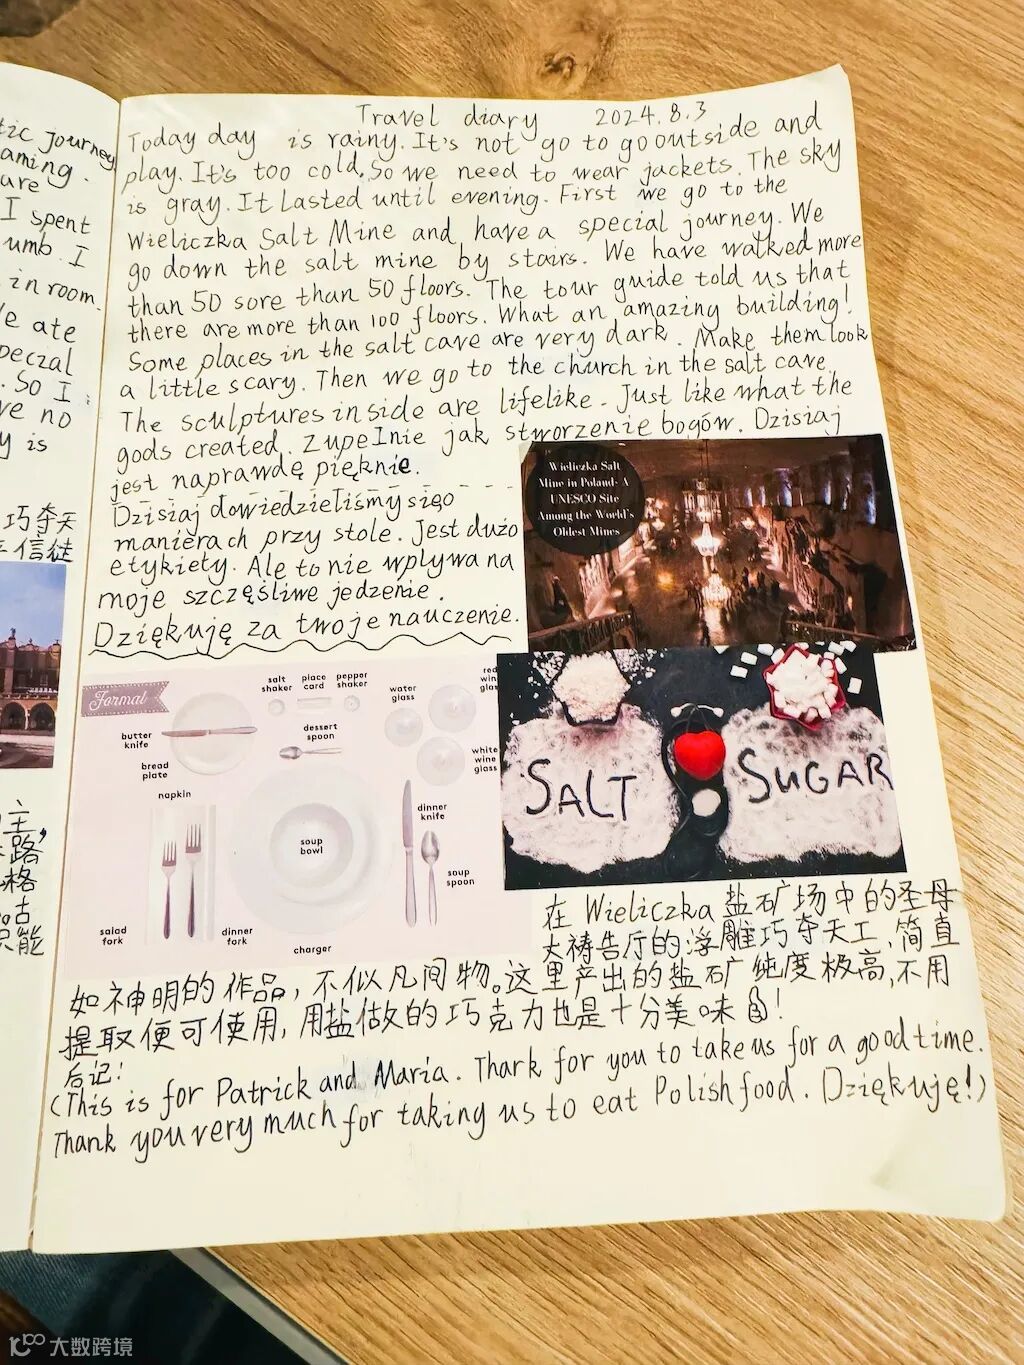 tic Journey
aming.
are
I spent
umb. I
in room.
e ate
peczal
. So I
ve no
y is
巧夺天
信徒
主
路
格
古
只能
Travel diary 2024.8.3
Today day is rainy. It's not go to go outside and
play. It's too cold. So we need to wear jackets. The sky
is gray. It Lasted until evening. First we go to the
Wieliczka Salt Mine and have a special journey. We
go down the salt mine by stairs. We have walked more
than 50 sore than 50 floors. The tour guide told us that
there are more than 100 floors. What an amazing building!
Some places in the salt cave are very dark. Make them look
a little scary. Then we go to the church in the salt cave.
The sculptures inside are lifelike. Just like what the
gods created. Zupełnie jak stworzenie bogów. Dzisiaj
jest naprawdę pięknie.
Dzisiaj dowiedzieliśmy sięo
manierach przy stole. Jest dużo
etykiety. Ale to nie wpływa na
moje szczęśliwe jedzenie.
Dziękuję za twoje nauczenie.
Wieliczka Salt
Mine in Poland: A
UNESCO Site
Among the World's
Oldest Mines
Formal
salt shaker
place card
pepper shaker
water glass
red wine glass
butter knife
dessert spoon
bread plate
white wine glass
napkin
dinner knife
soup bowl
soup spoon
salad fork
dinner fork
charger
SALT
SUGAR
在 Wieliczka 盐矿场中的圣母
大祷告厅的浮雕巧夺天工,简直
如神明的作品,不似凡间物。这里产出的盐矿纯度极高,不用
提取便可使用,用盐做的巧克力也是十分美味!
后记:
(This is for Patrick and Maria. Thank for you to take us for a good time.
Thank you very much for taking us to eat Polish food. Dziękuję!)
大数跨境